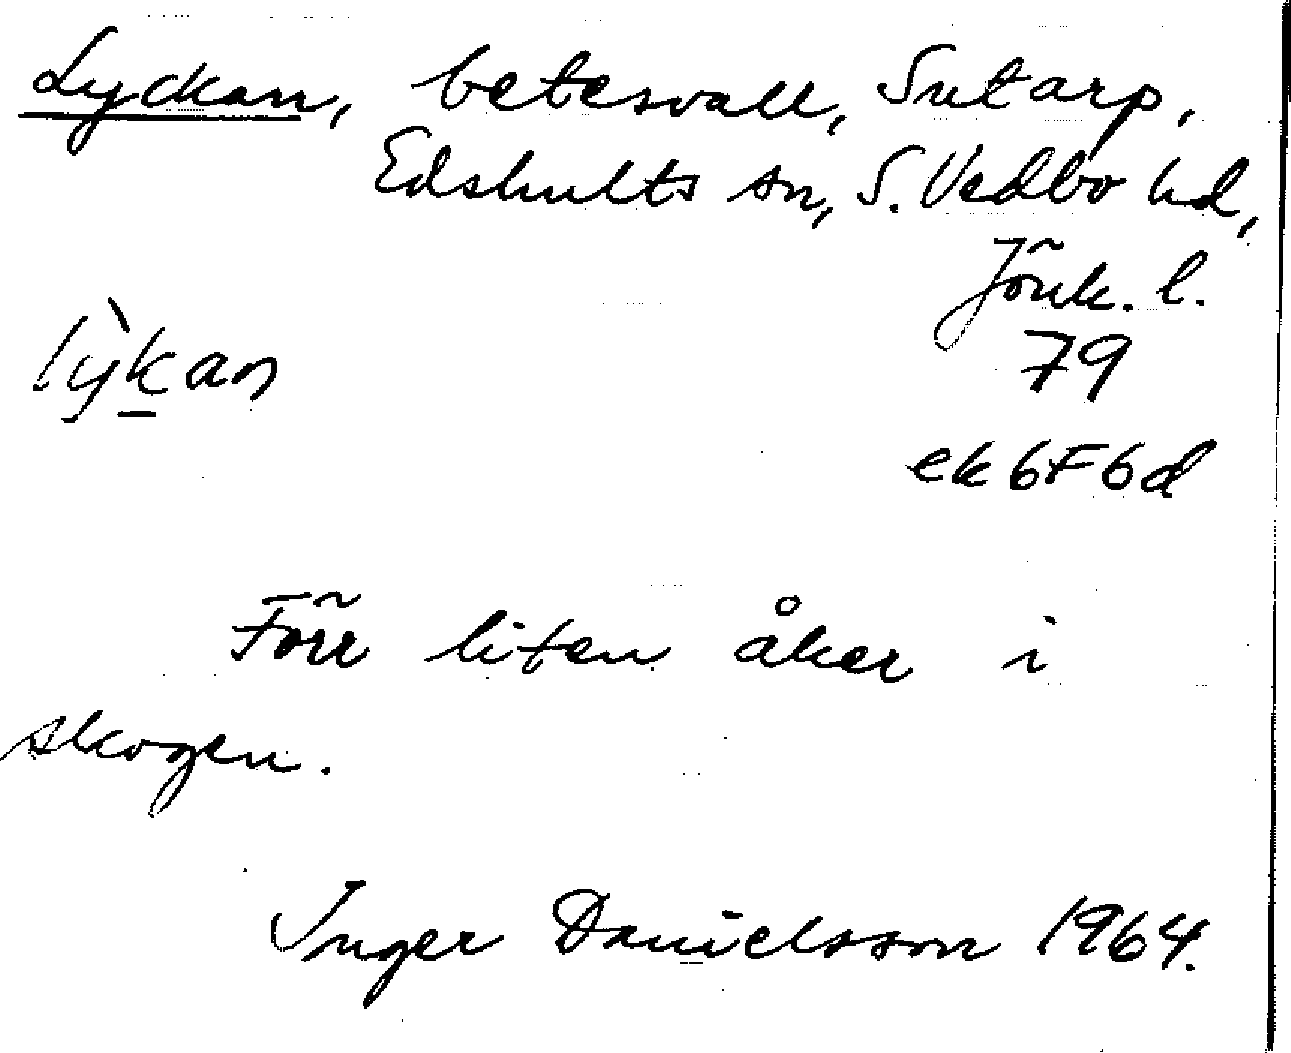 Lyckan, betesvall, Sutarp,
Edshults sn, S. Vedbo hd,
Jönk. l.
lỳkan
79
ek 6F6d
Förr liten åker i
skogen.
Inger Danielsson 1964.